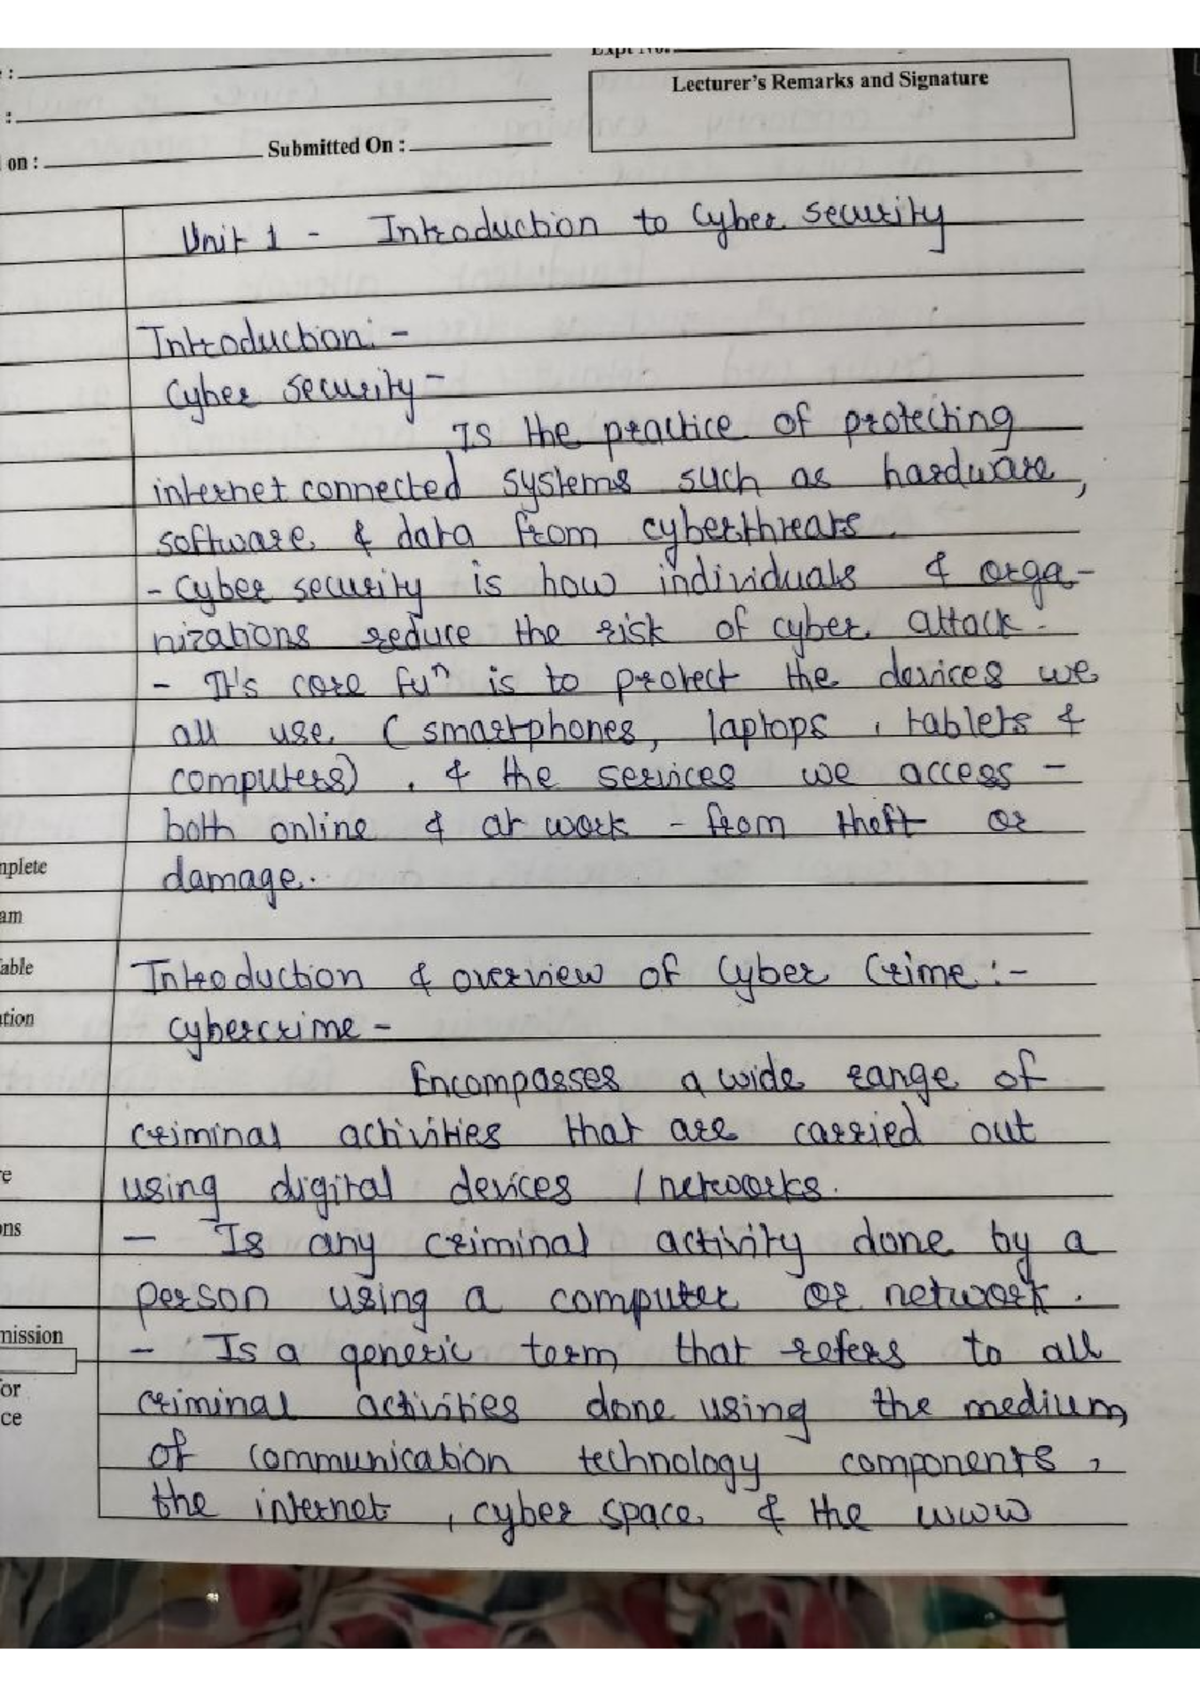 Expt No.
:
Lecturer's Remarks and Signature
:
on : Submitted On :
Unit 1 - Introduction to Cyber security
Introduction:-
Cyber security-
Is the practice of protecting
internet connected systems such as hardware,
software & data from cyberthreats.
- Cyber security is how individuals & orga-
nizations reduce the risk of cyber attack.
- It's core fuⁿ is to protect the devices we
all use (smartphones, laptops, tablets &
computers), & the services we access -
both online & at work - from theft or
damage.
nplete
am
able
Introduction & overview of Cyber Crime:-
tion
cybercrime -
Encompasses a wide range of
criminal activities that are carried out
e
using digital devices / networks.
ons
- Is any criminal activity done by a
person using a computer or network.
mission
- Is a generic term that refers to all
or
criminal activities done using the medium
ce
of communication technology components,
the internet, cyber space & the www